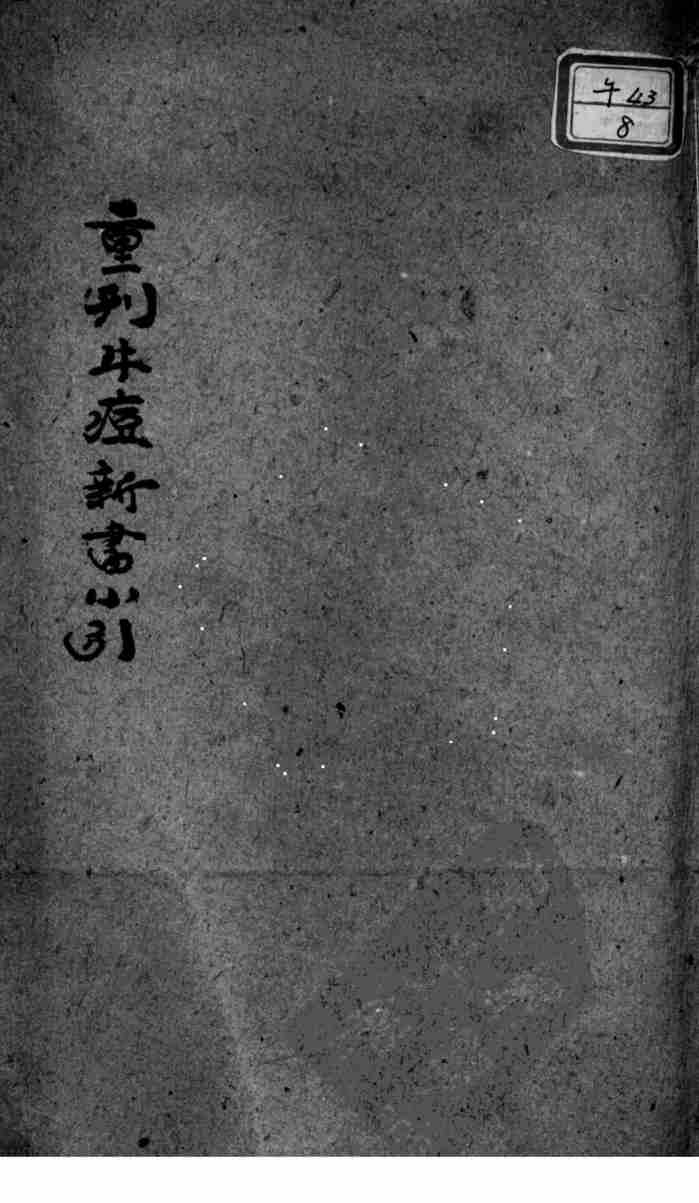 重刋牛痘新書小引
ヰ 43
8